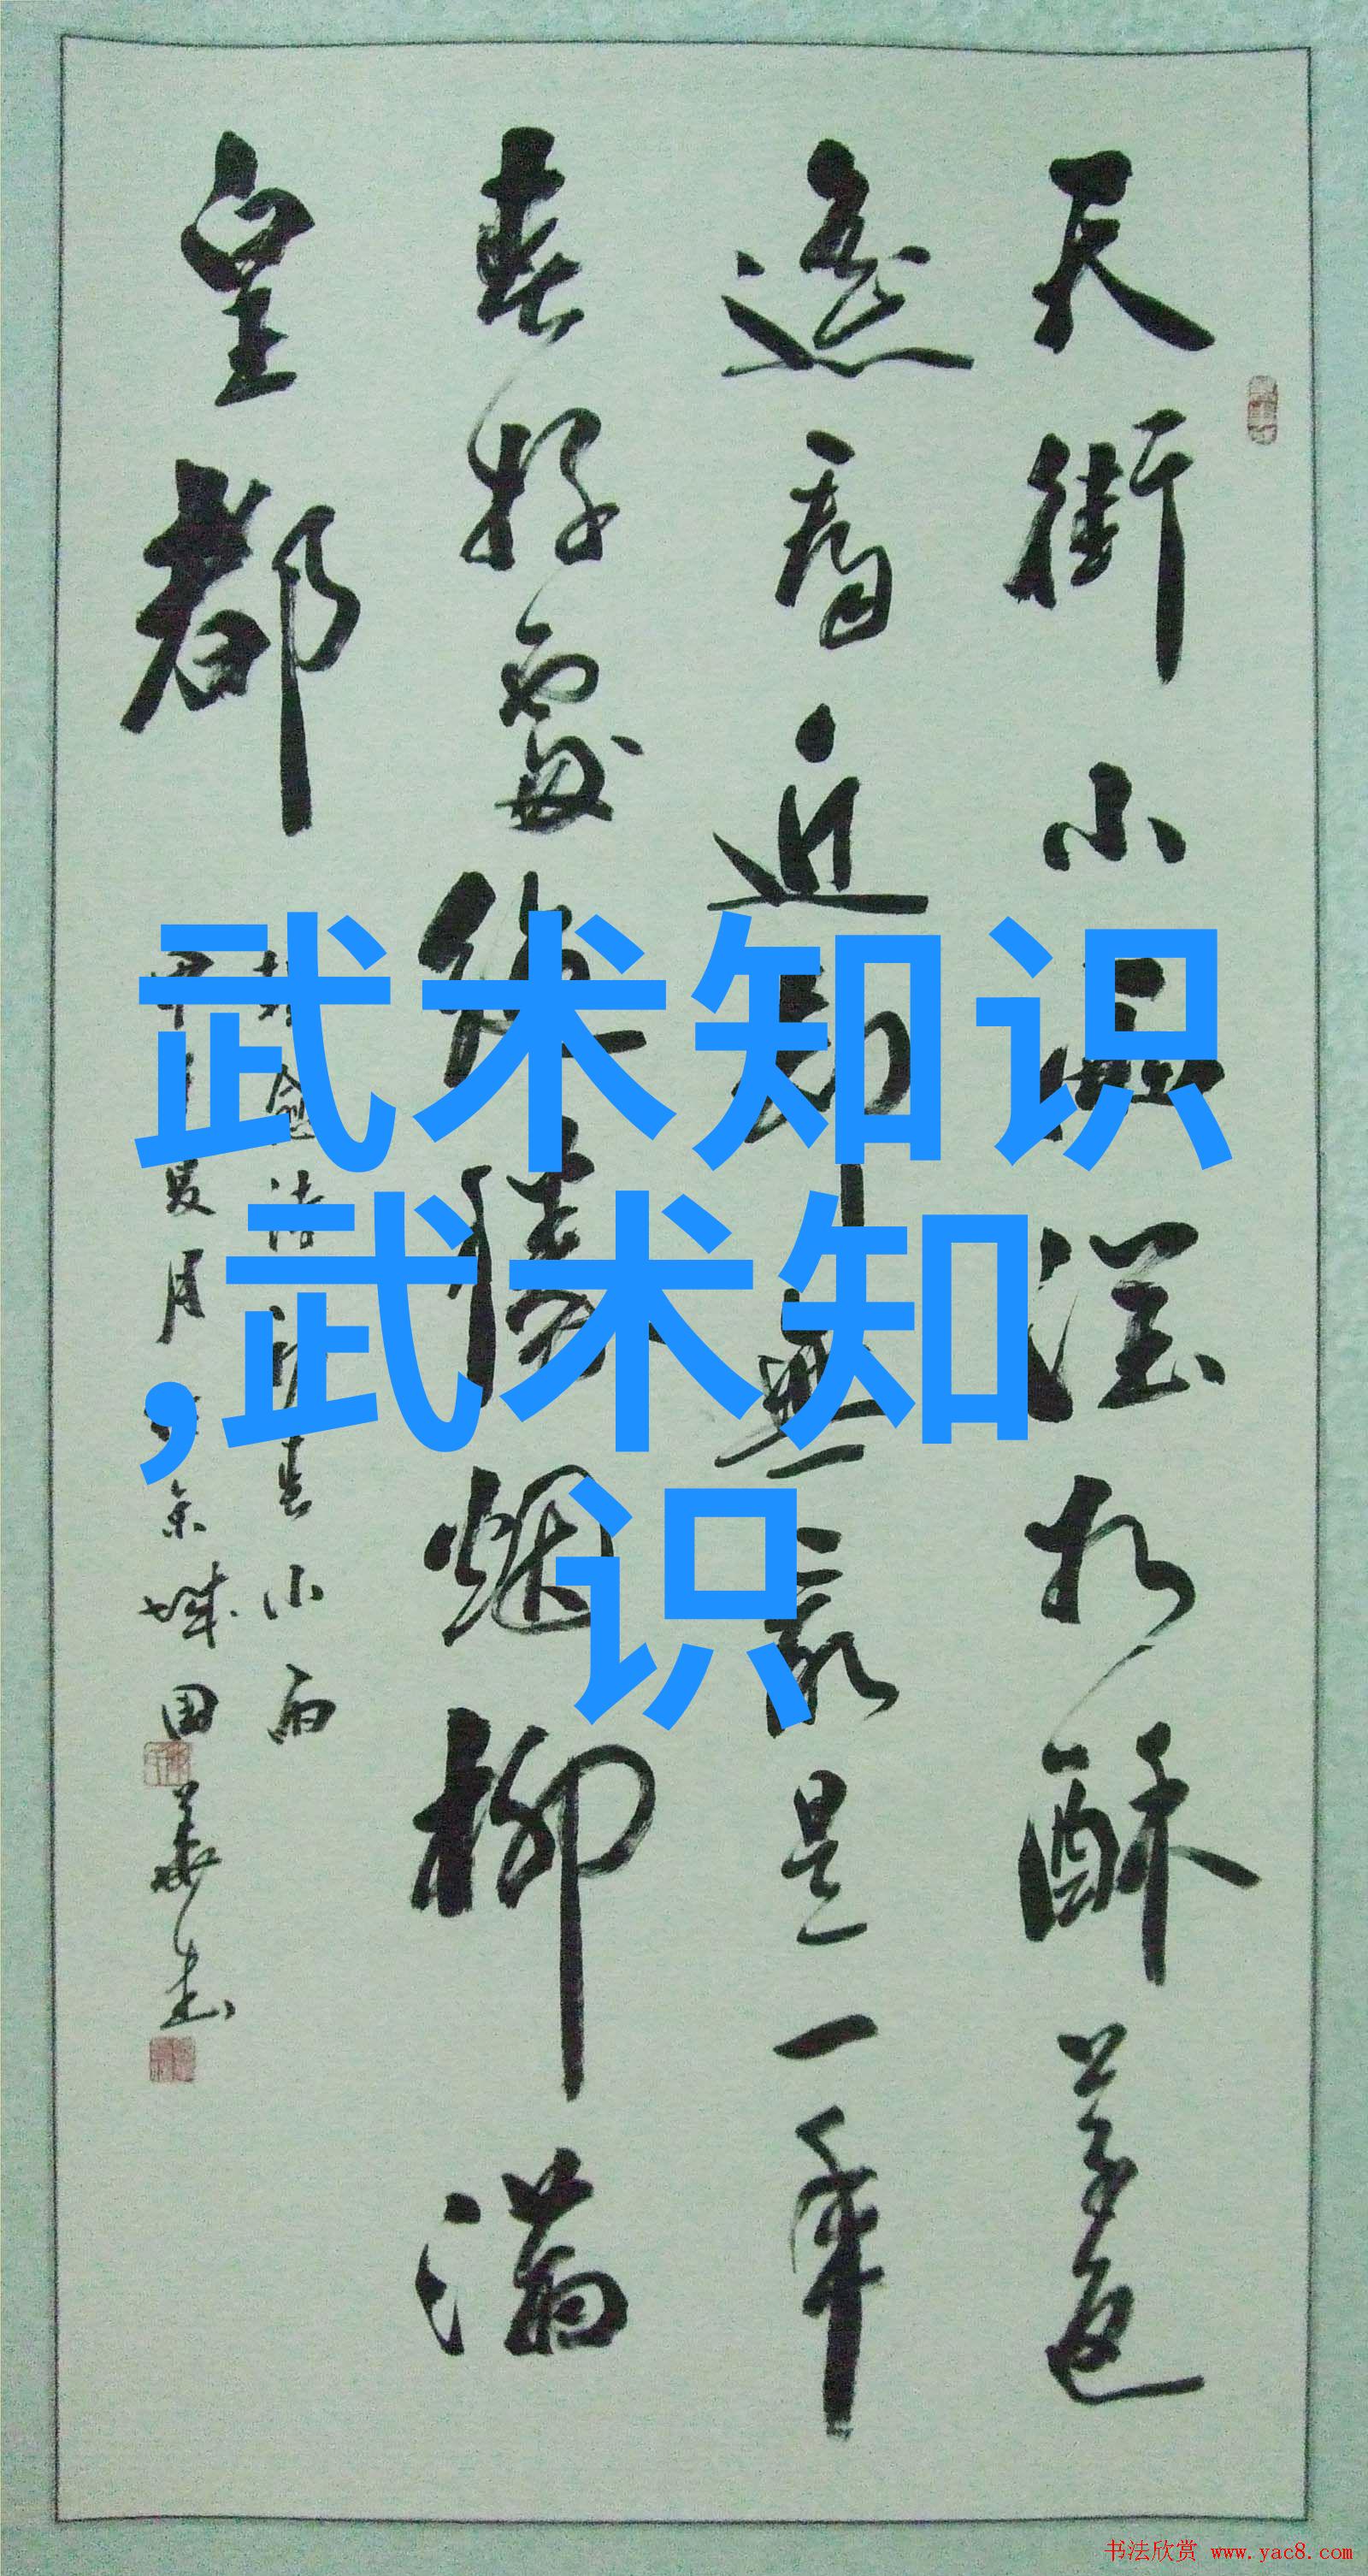 天街小雨润如酥草色
遥看近却无最是一年
春好處絶勝烟柳满
皇都
韩愈诗早春小雨
国华书
武术知识
,武术知
识
书法欣赏 www.yac8.com